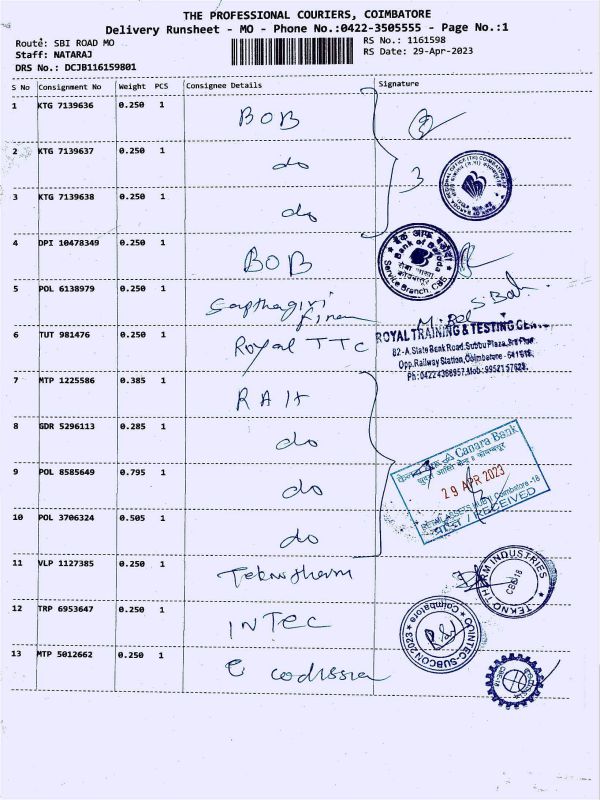 THE PROFESSIONAL COURIERS, COIMBATORE
Delivery Runsheet - MO - Phone No.:0422-3505555 - Page No.:1
Route: SBI ROAD MO
RS No.: 1161598
Staff: NATARAJ
RS Date: 29-Apr-2023
DRS No.: DCJB116159801
S No Consignment No Weight PCS Consignee Details Signature
1 KTG 7139636 0.250 1 BOB
2 KTG 7139637 0.250 1 do
3 KTG 7139638 0.250 1 do
3
4 DPI 10478349 0.250 1 BOB
बैंक ऑफ बड़ौदा
Bank of Baroda
सेवा शाखा
कोयम्बत्तूर
Service Branch, CBE
5 POL 6138979 0.250 1 Sapthagiri
6 TUT 981476 0.250 1 Royal TTC
ROYAL TRAINING & TESTING
82-A, State Bank Road, Subbu Plaza, 3rd Floor
Opp. Railway Station, Coimbatore - 641018.
7 MTP 1225586 0.385 1 RAH
8 GDR 5296113 0.285 1 do
9 POL 8585649 0.795 1 do
केनरा बैंक Canara Bank
29 APR 2023
RETAIL ASSETS HUB Coimbatore-18
/ RECEIVED
10 POL 3706324 0.505 1 do
11 VLP 1127385 0.250 1 Teknotherm
TEKNO THERM INDUSTRIES
CBE-18
12 TRP 6953647 0.250 1 INTEC
COINTEC-SUBCON 2023
Coimbatore
13 MTP 5012662 0.250 1 codissia